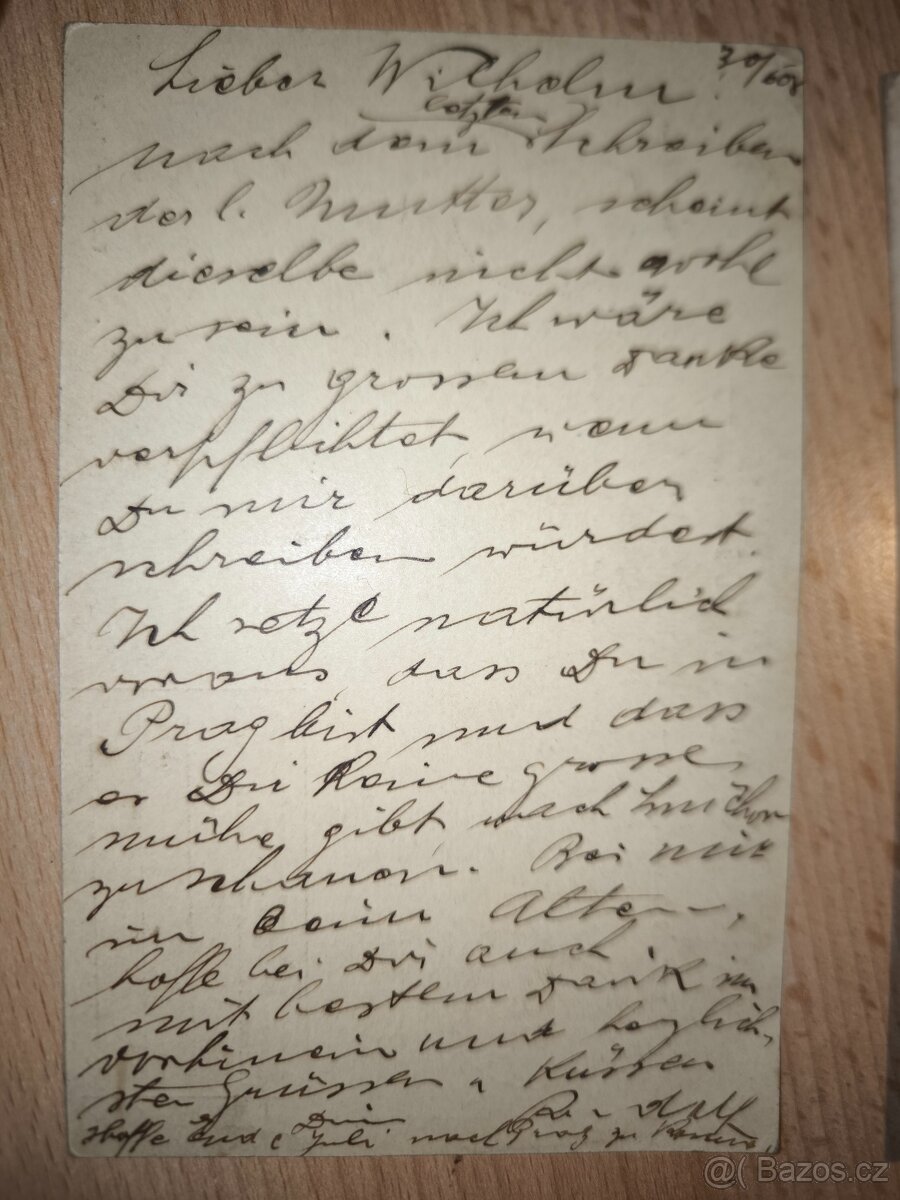 Lieber Wilhelm!
letzten
nach dem Schreiben
der l. Mutter, scheint
dieselbe nicht wohl
zu sein. Ich wäre
Dir zu grossem Danke
verpflichtet, wenn
Du mir darüber
schreiben würdest.
Ich setze natürlich
voraus, dass Du in
Prag bist und dass
es Dir keine grosse
mühe gibt, nach
zu schauen. Bei mir
ist beim Alten,
hoffe bei Dir auch.
mit bestem Dank im
vorhinein und herzlich
sten Grüssen u Küssen
Dein Rudolf
hoffe Ende Juli nach Prag zu kommen
@( Bazos.cz